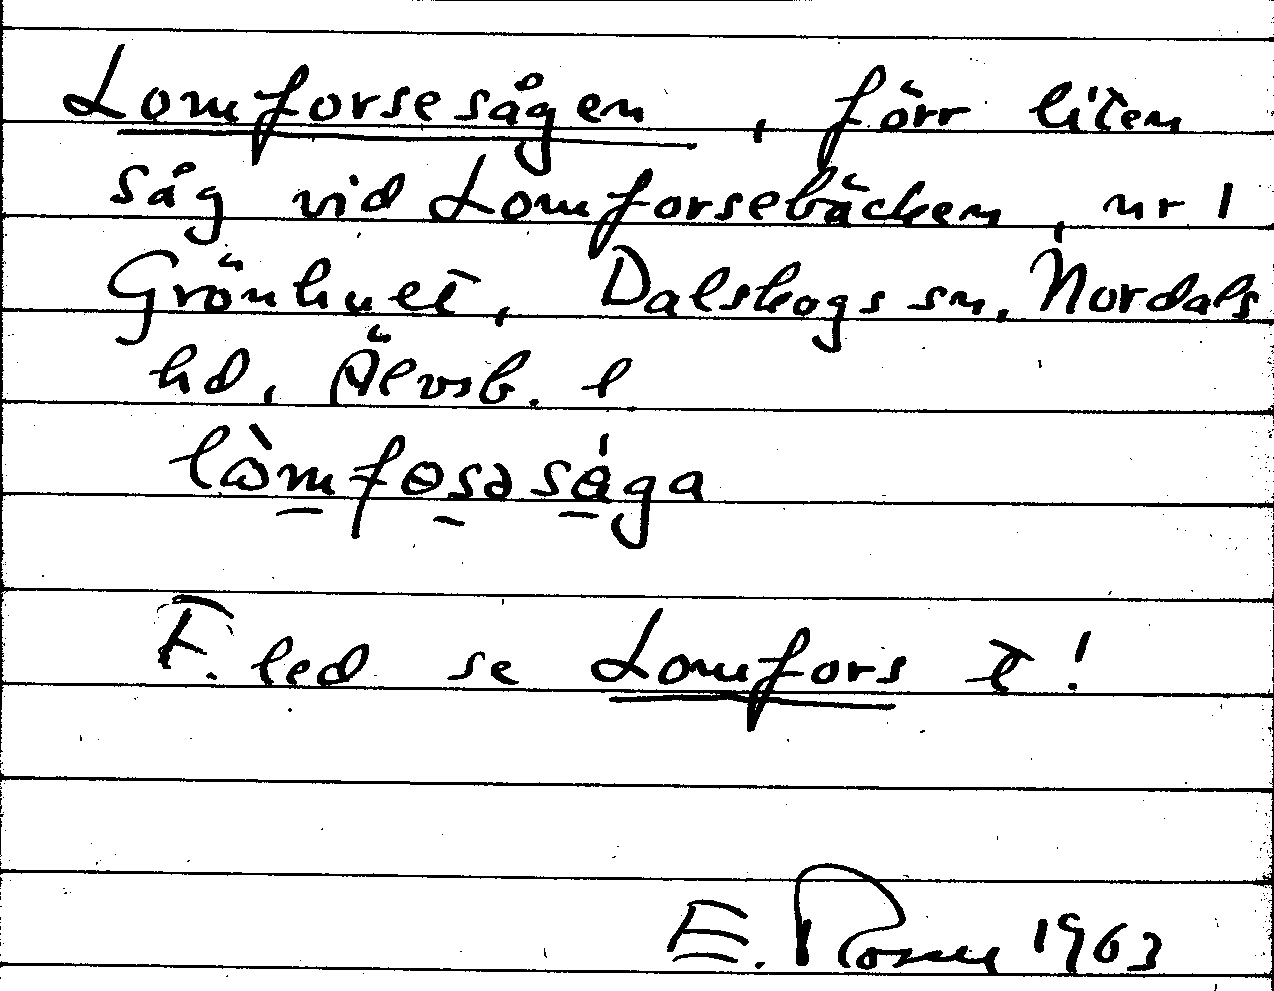 Lomforsesågen, förr liten
såg vid Lomforsebäcken, nr 1
Grönhuet, Dalskogs sn, Nordals
hd, Älvsb. l
lòmfosəsága
F. led se Lomfors t!
E. 1963